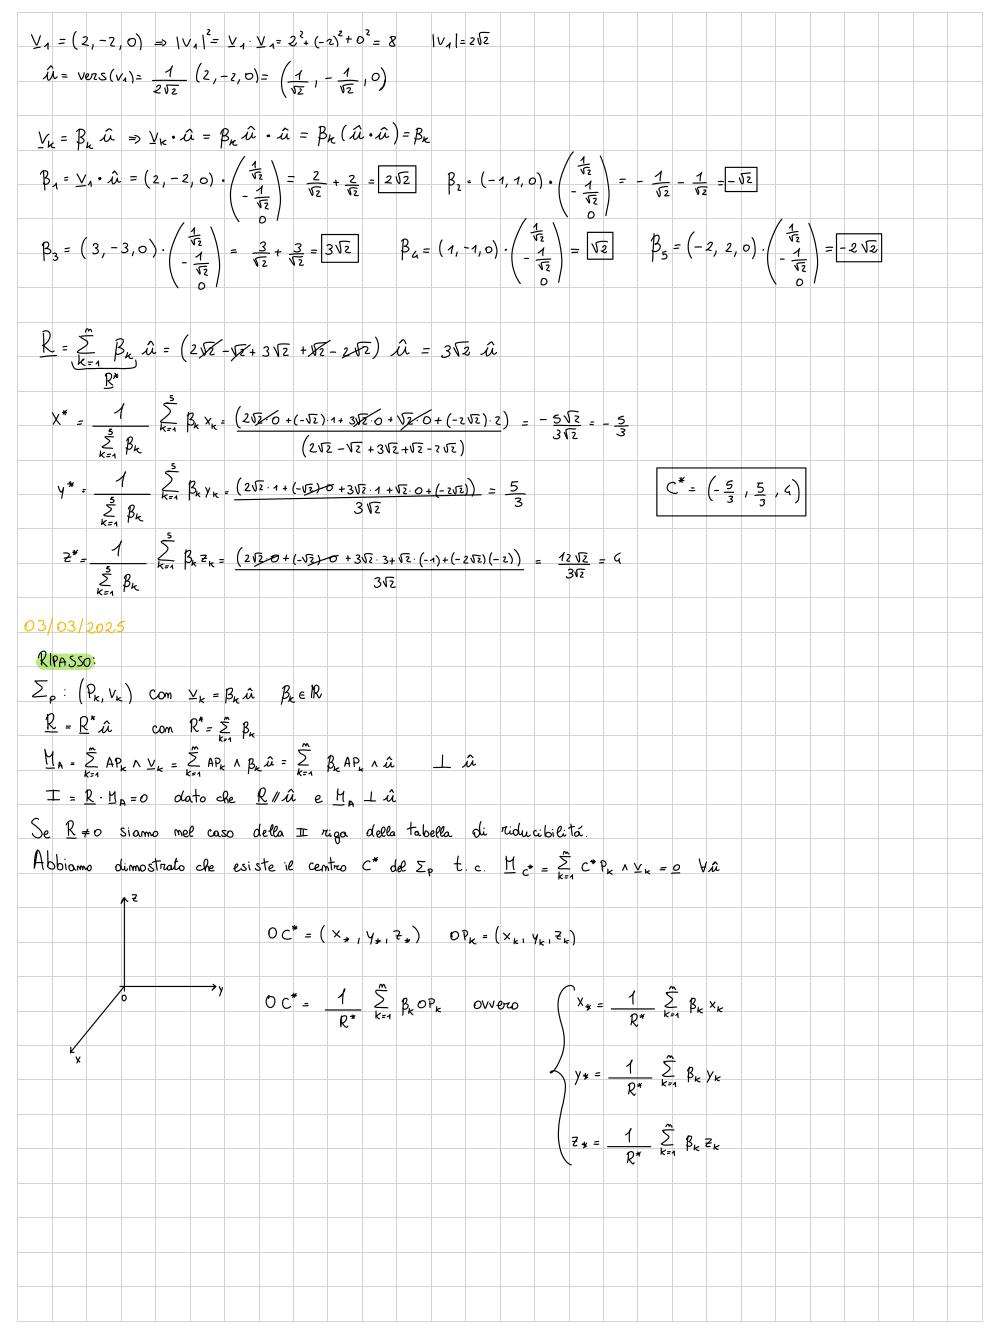 v₁ = (2,-2,0) ⇒ |v₁|² = v₁·v₁ = 2²+(-2)²+0² = 8   |v₁| = 2√2
û = vers(v₁) = 1/(2√2) (2,-2,0) = (1/√2, -1/√2, 0)
vₖ = βₖ û ⇒ vₖ·û = βₖ û · û = βₖ (û·û) = βₖ
β₁ = v₁·û = (2,-2,0)·(1/√2, -1/√2, 0) = 2/√2 + 2/√2 = 2√2   β₂ = (-1,1,0)·(1/√2, -1/√2, 0) = -1/√2 - 1/√2 = -√2
β₃ = (3,-3,0)·(1/√2, -1/√2, 0) = 3/√2 + 3/√2 = 3√2   β₄ = (1,-1,0)·(1/√2, -1/√2, 0) = √2   β₅ = (-2,2,0)·(1/√2, -1/√2, 0) = -2√2
R = Σₖ₌₁ᵐ βₖ û = (2√2 - √2 + 3√2 + √2 - 2√2) û = 3√2 û
R*
x* = 1/(Σₖ₌₁⁵ βₖ) Σₖ₌₁⁵ βₖ xₖ = (2√2·0 + (-√2)·1 + 3√2·0 + √2·0 + (-2√2)·2) / (2√2 - √2 + 3√2 + √2 - 2√2) = -5√2/3√2 = -5/3
y* = 1/(Σₖ₌₁⁵ βₖ) Σₖ₌₁⁵ βₖ yₖ = (2√2·1 + (-√2)·0 + 3√2·1 + √2·0 + (-2√2)) / 3√2 = 5/3   C* = (-5/3, 5/3, 4)
z* = 1/(Σₖ₌₁⁵ βₖ) Σₖ₌₁⁵ βₖ zₖ = (2√2·0 + (-√2)·0 + 3√2·3 + √2·(-1) + (-2√2)(-2)) / 3√2 = 12√2/3√2 = 4
03/03/2025
RIPASSO:
Σₚ : (Pₖ, vₖ) con vₖ = βₖ û   βₖ ∈ ℝ
R = R* û   con R* = Σₖ₌₁ᵐ βₖ
M_A = Σₖ₌₁ᵐ APₖ ∧ vₖ = Σₖ₌₁ᵐ APₖ ∧ βₖ û = Σₖ₌₁ᵐ βₖ APₖ ∧ û   ⊥ û
I = R · M_A = 0   dato che R // û e M_A ⊥ û
Se R ≠ 0 siamo nel caso della II riga della tabella di riducibilitá.
Abbiamo dimostrato che esiste il centro C* del Σₚ t.c. M_C* = Σₖ₌₁ᵐ C*Pₖ ∧ vₖ = 0 ∀û
z
OC* = (x*, y*, z*)   OPₖ = (xₖ, yₖ, zₖ)
O
y
x
OC* = 1/R* Σₖ₌₁ᵐ βₖ OPₖ   ovvero   x* = 1/R* Σₖ₌₁ᵐ βₖ xₖ
y* = 1/R* Σₖ₌₁ᵐ βₖ yₖ
z* = 1/R* Σₖ₌₁ᵐ βₖ zₖ